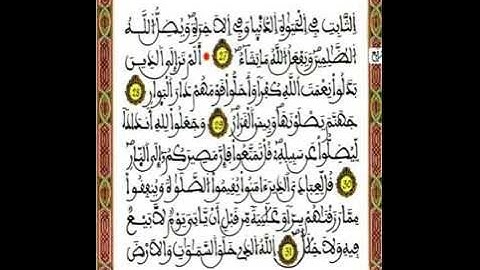 اِ۬لثَّابِتِ فِي اِ۬لْحَيَوٰةِ اِ۬لدُّنْيَا وَفِي اِ۬لَاخِرَةِ وَيُضِلُّ اُ۬للَّهُ
اُ۬لظَّٰلِمِينَ وَيَفْعَلُ اُ۬للَّهُ مَا يَشَآءُ 27 أَلَمْ تَرَ إِلَى اَ۬لذِينَ
بَدَّلُواْ نِعْمَتَ اَ۬للَّهِ كُفْراً وَأَحَلُّواْ قَوْمَهُمْ دَارَ اَ۬لْبَوَارِ 28
جَهَنَّمَ يَصْلَوْنَهَا وَبِيسَ اَ۬لْقَرَارُ 29 وَجَعَلُواْ لِلهِ أَندَاداً
لِّيُضِلُّواْ عَن سَبِيلِهِ قُلْ تَمَتَّعُواْ فَإِنَّ مَصِيرَكُمُ إِلَى اَ۬لنَّارِ
30 قُل لِّعِبَادِيَ اَ۬لذِينَ ءَامَنُواْ يُقِيمُواْ اُ۬لصَّلَوٰةَ وَيُنفِقُواْ
مِمَّا رَزَقْنَٰهُمْ سِرّاً وَعَلَٰنِيَةً مِّن قَبْلِ أَنْ يَّاتِيَ يَوْمٌ لَّا بَيْعٌ
فِيهِ وَلَا خِلَٰلٌ 31 اِ۬للَّهُ اُ۬لذِي خَلَقَ اَ۬لسَّمَٰوَٰتِ وَالَارْضَ